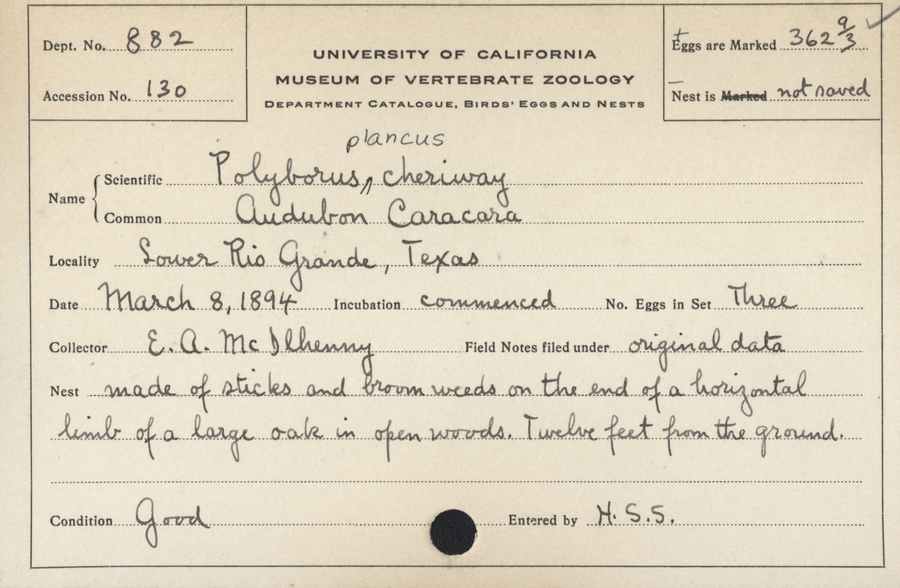 Dept. No. 882
Accession No. 130
UNIVERSITY OF CALIFORNIA
MUSEUM OF VERTEBRATE ZOOLOGY
DEPARTMENT CATALOGUE, BIRDS' EGGS AND NESTS
Eggs are Marked 362 9/3
Nest is Marked not saved
plancus
Name { Scientific Polyborus ‸ cheriway
Common Audubon Caracara
Locality Lower Rio Grande, Texas
Date March 8, 1894 Incubation commenced No. Eggs in Set Three
Collector E. A. McIlhenny Field Notes filed under original data
Nest made of sticks and broom weeds on the end of a horizontal
limb of a large oak in open woods. Twelve feet from the ground.
Condition Good Entered by H. S. S.